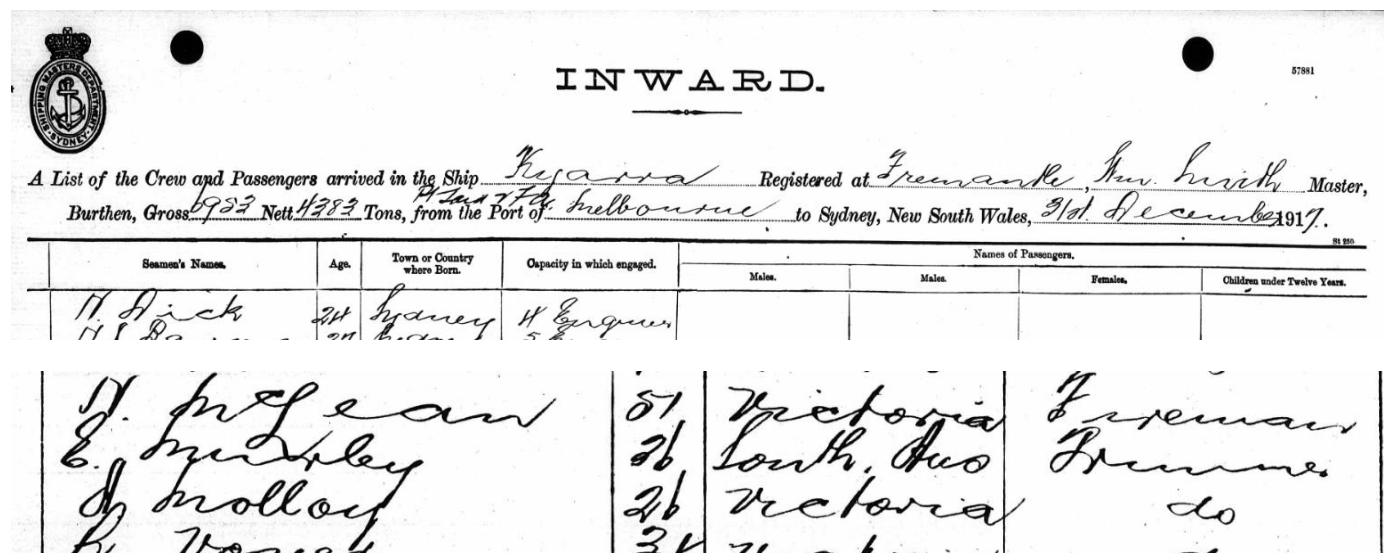 SHIPPING MASTERS DEPARTMENT SYDNEY
57881
INWARD.
A List of the Crew and Passengers arrived in the Ship Kyarra Registered at Fremantle, Wm. Smith Master,
Burthen, Gross 6953 Nett 4383 Tons, from the Port of Melbourne to Sydney, New South Wales, 31st December 1917.
St 250
Seamen's Names. Age. Town or Country where Born. Capacity in which engaged. Names of Passengers.
Males. Males. Females. Children under Twelve Years.
Dick 24 Sydney 4 Engineer
McLean 51 Victoria Fireman
E. 26 South. Aus Trimmer
Molloy 26 Victoria do